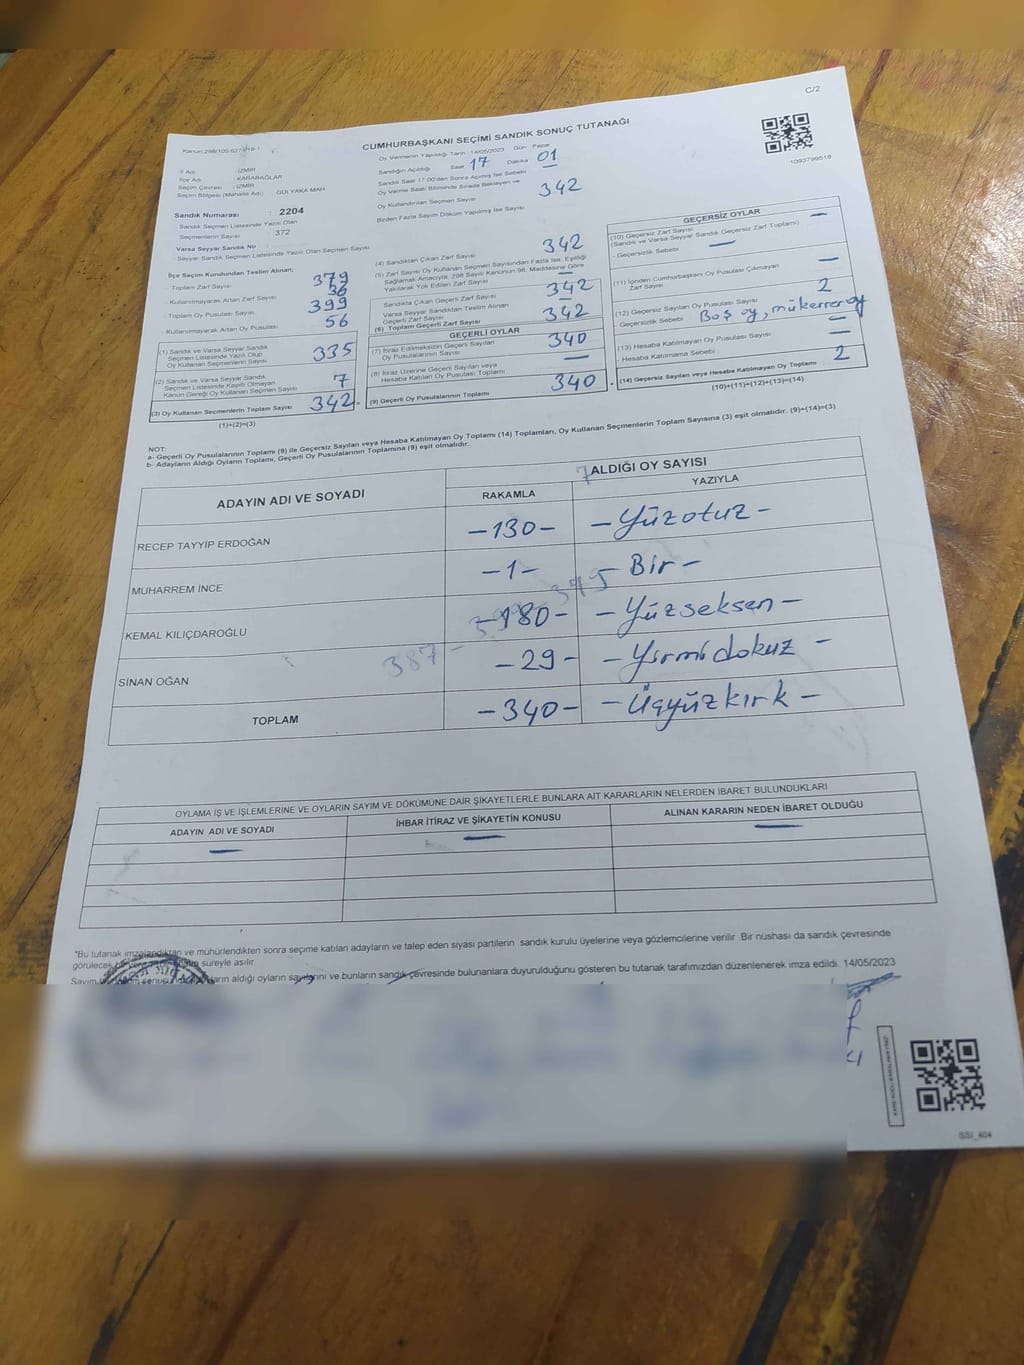 C/2
Kanun:298/105.627/
CUMHURBAŞKANI SEÇİMİ SANDIK SONUÇ TUTANAĞI
1093799518
İl Adı : İZMİR
İlçe Adı : KARABAĞLAR
Seçim Çevresi : İZMİR
Seçim Bölgesi (Mahalle Adı) : GÜLYAKA MAH
Sandık Numarası : 2204
Sandık Seçmen Listesinde Yazılı Olan
Seçmenlerin Sayısı : 372
Varsa Seyyar Sandık No :
- Seyyar Sandık Seçmen Listesinde Yazılı Olan Seçmen Sayısı
Oy Vermenin Yapıldığı Tarih : 14/05/2023 Gün : Pazar
Sandığın Açıldığı Saat 17 Dakika 01
Sandık Saat 17.00'den Sonra Açılmış İse Sebebi
Oy Verme Saati Bitiminde Sırada Bekleyen ve
Oy Kullandırılan Seçmen Sayısı 342
Birden Fazla Sayım Döküm Yapılmış İse Sayısı
İlçe Seçim Kurulundan Teslim Alınan:
- Toplam Zarf Sayısı 379
- Kullanılmayarak Artan Zarf Sayısı 36
Toplam Oy Pusulası Sayısı 399
- Kullanılmayarak Artan Oy Pusulası 56
(1) Sandık ve Varsa Seyyar Sandık
Seçmen Listesinde Yazılı Olup
Oy Kullanan Seçmenlerin Sayısı 335
(2) Sandık ve Varsa Seyyar Sandık
Seçmen Listesinde Kayıtlı Olmayan
Kanun Gereği Oy Kullanan Seçmen Sayısı 7
(3) Oy Kullanan Seçmenlerin Toplam Sayısı 342
(1)+(2)=(3)
(4) Sandıktan Çıkan Zarf Sayısı 342
(5) Zarf Sayısı Oy Kullanan Seçmen Sayısından Fazla İse, Eşitliği
Sağlamak Amacıyla, 298 Sayılı Kanunun 98. Maddesine Göre
Yakılarak Yok Edilen Zarf Sayısı —
Sandıkta Çıkan Geçerli Zarf Sayısı 342
Varsa Seyyar Sandıktan Teslim Alınan
Geçerli Zarf Sayısı —
(6) Toplam Geçerli Zarf Sayısı 342
GEÇERLİ OYLAR
(7) İtiraz Edilmeksizin Geçerli Sayılan
Oy Pusulalarının Sayısı 340
(8) İtiraz Üzerine Geçerli Sayılan veya
Hesaba Katılan Oy Pusulası Toplamı —
(9) Geçerli Oy Pusulalarının Toplamı 340
GEÇERSİZ OYLAR
(10) Geçersiz Zarf Sayısı —
(Sandık ve Varsa Seyyar Sandık Geçersiz Zarf Toplamı)
- Geçersizlik Sebebi —
(11) İçinden Cumhurbaşkanı Oy Pusulası Çıkmayan
Zarf Sayısı —
(12) Geçersiz Sayılan Oy Pusulası Sayısı 2
- Geçersizlik Sebebi Boş oy, mükerrer oy
(13) Hesaba Katılmayan Oy Pusulası Sayısı —
- Hesaba Katılmama Sebebi —
(14) Geçersiz Sayılan veya Hesaba Katılmayan Oy Toplamı 2
(10)+(11)+(12)+(13)=(14)
NOT:
a- Geçerli Oy Pusulalarının Toplamı (9) ile Geçersiz Sayılan veya Hesaba Katılmayan Oy Toplamı (14) Toplamları, Oy Kullanan Seçmenlerin Toplam Sayısına (3) eşit olmalıdır. (9)+(14)=(3)
b- Adayların Aldığı Oyların Toplamı, Geçerli Oy Pusulalarının Toplamına (9) eşit olmalıdır.
ADAYIN ADI VE SOYADI
ALDIĞI OY SAYISI
RAKAMLA YAZIYLA
RECEP TAYYİP ERDOĞAN -130- -Yüzotuz-
MUHARREM İNCE -1- -Bir-
KEMAL KILIÇDAROĞLU -180- -Yüzseksen-
SİNAN OĞAN -29- -Yirmidokuz-
TOPLAM -340- -Üçyüzkırk-
OYLAMA İŞ VE İŞLEMLERİNE VE OYLARIN SAYIM VE DÖKÜMÜNE DAİR ŞİKAYETLERLE BUNLARA AİT KARARLARIN NELERDEN İBARET BULUNDUKLARI
ADAYIN ADI VE SOYADI İHBAR İTİRAZ VE ŞİKAYETİN KONUSU ALINAN KARARIN NEDEN İBARET OLDUĞU
— — —
*Bu tutanak imzalandıktan ve mühürlendikten sonra seçime katılan adayların ve talep eden siyasi partilerin sandık kurulu üyelerine veya gözlemcilerine verilir. Bir nüshası da sandık çevresinde
görülecek bir yere süreyle asılır.
aldığı oyların sayılarını ve bunların sandık çevresinde bulunanlara duyurulduğunu gösteren bu tutanak tarafımızdan düzenlenerek imza edildi. 14/05/2023
SSI_404